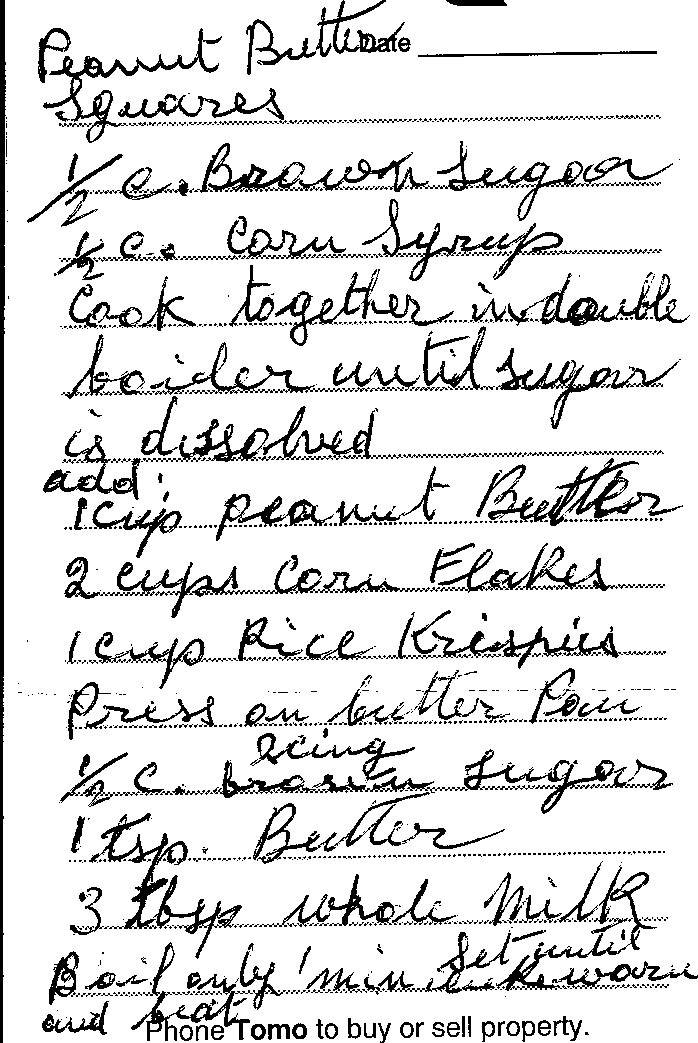 Peanut Butter Date
Squares
1/2 c. Brown Sugar
1/2 c. Corn Syrup
Cook together in double
boiler until sugar
is dissolved
add:
1 cup peanut Butter
2 cups Corn Flakes
1 cup Rice Krispies
Press on butter Pan
Icing
1/2 c. brown sugar
1 tsp. Butter
3 tbsp whole Milk
Set until
Boil only 1 min lukewarm
and beat
Phone Tomo to buy or sell property.